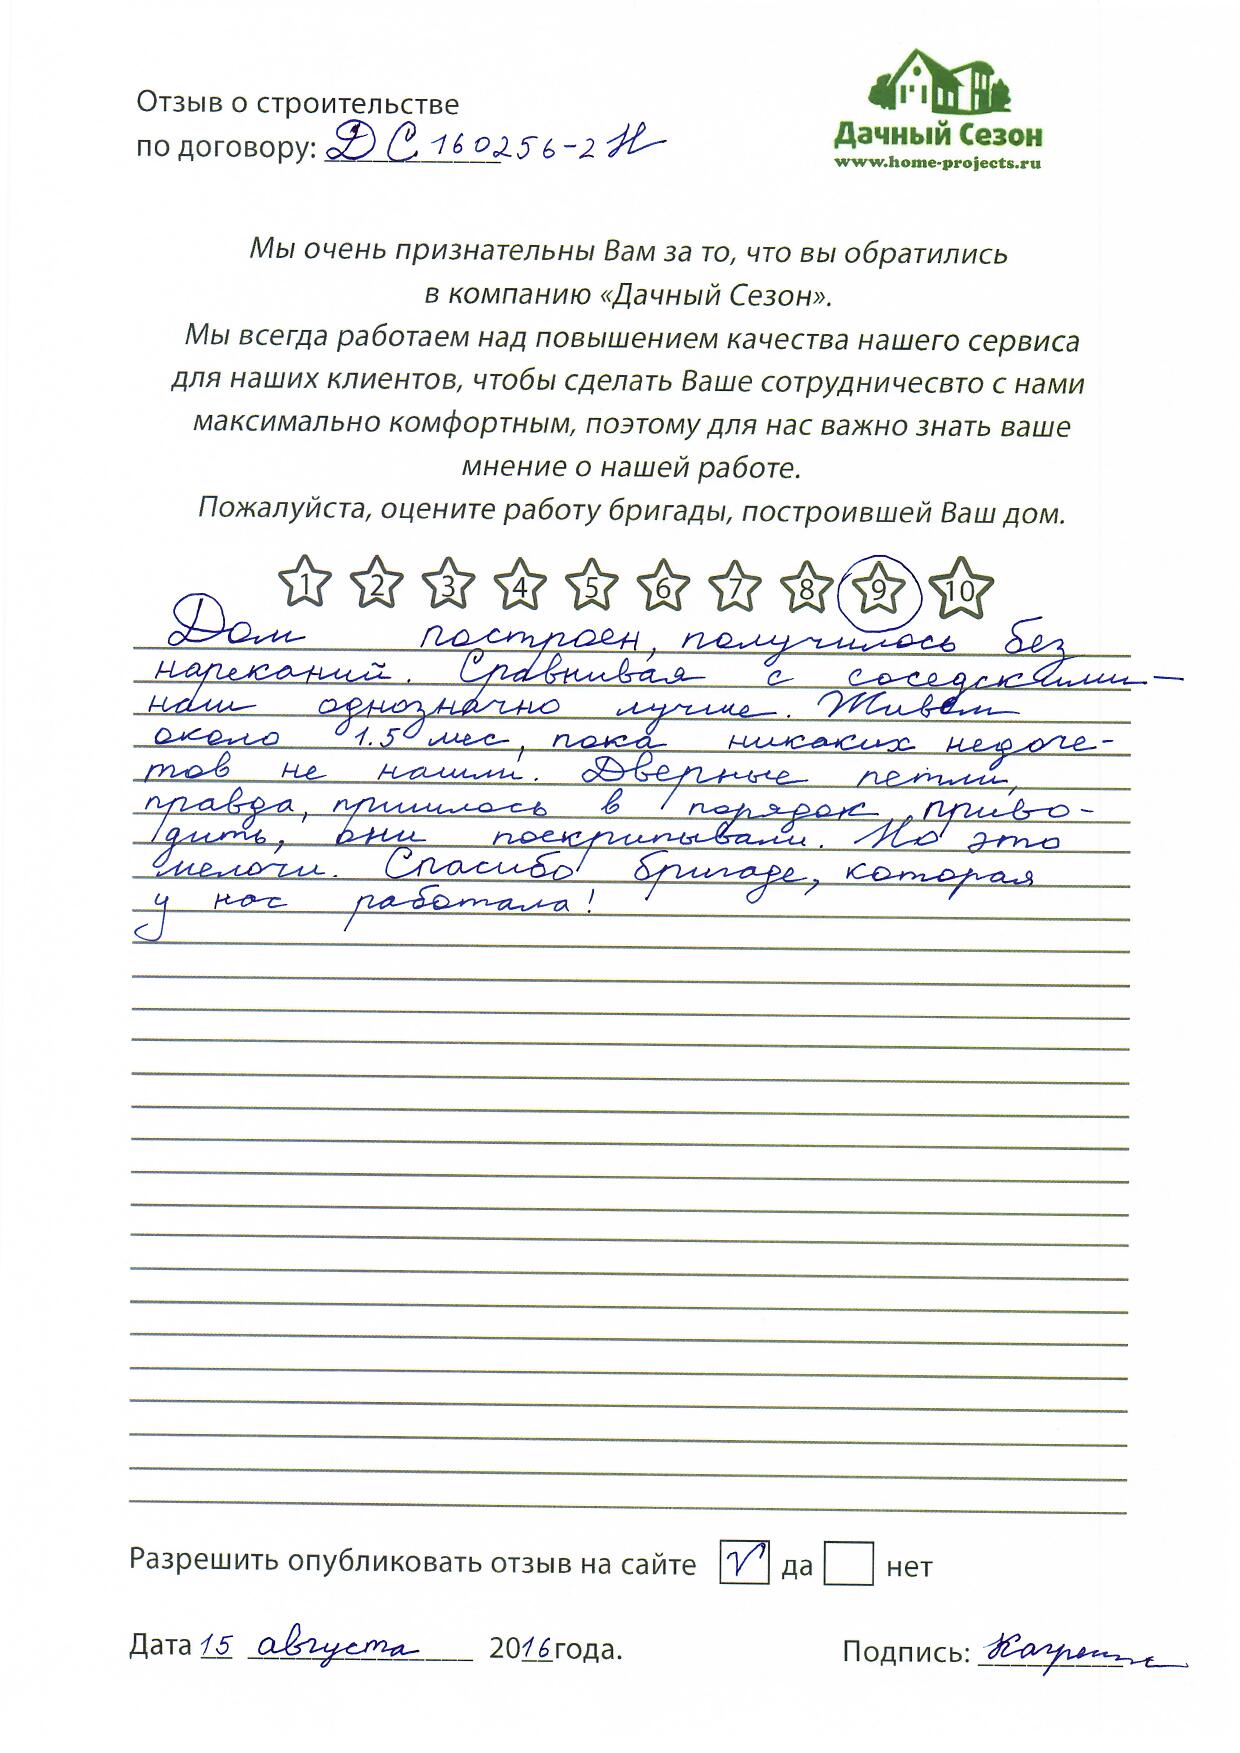 Отзыв о строительстве
по договору: ДС 160256-2Н
Дачный Сезон
www.home-projects.ru
Мы очень признательны Вам за то, что вы обратились
в компанию «Дачный Сезон».
Мы всегда работаем над повышением качества нашего сервиса
для наших клиентов, чтобы сделать Ваше сотрудничесвто с нами
максимально комфортным, поэтому для нас важно знать ваше
мнение о нашей работе.
Пожалуйста, оцените работу бригады, построившей Ваш дом.
1 2 3 4 5 6 7 8 9 10
Дом построен, получилось без
нареканий. Сравнивая с соседскими —
наш однозначно лучше. Живем
около 1.5 мес, пока никаких недоче-
тов не нашли. Дверные петли,
правда, пришлось в порядок приво-
дить, они поскрипывали. Но это
мелочи. Спасибо бригаде, которая
у нас работала!
Разрешить опубликовать отзыв на сайте V да нет
Дата 15 августа 2016 года.
Подпись: